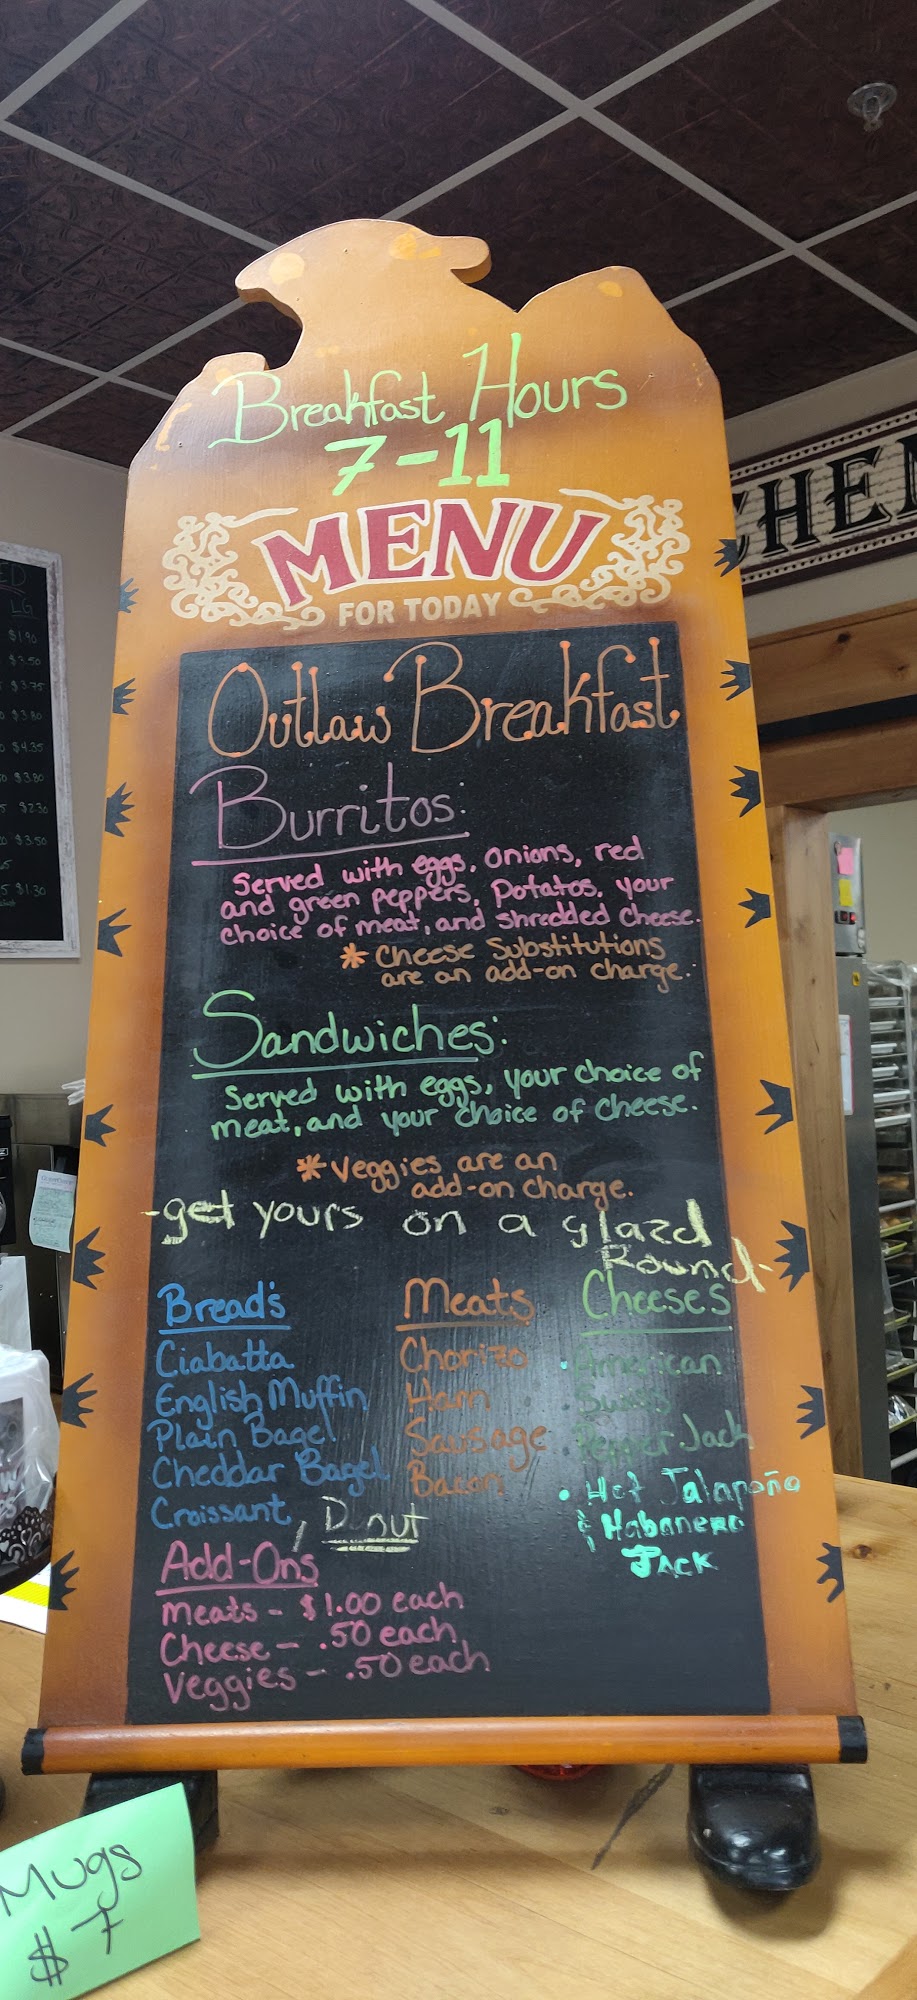 Breakfast Hours
7-11
MENU
FOR TODAY
Outlaw Breakfast
Burritos:
Served with eggs, onions, red
and green peppers, Potatos, your
choice of meat, and shredded cheese.
* Cheese Substitutions
are an add-on charge.
Sandwiches:
Served with eggs, your choice of
meat, and your choice of cheese.
* Veggies are an
add-on charge.
-get yours on a glazd
Round-
Bread's
Ciabatta
English Muffin
Plain Bagel
Cheddar Bagel
Croissant, Donut
Meats
Chorizo
Ham
Sausage
Bacon
Cheeses
• American
• Swiss
• Pepper Jack
• Hot Jalapaño
& Habanero
JACK
Add-Ons
Meats - $1.00 each
Cheese - .50 each
Veggies - .50 each
Mugs
$7
LG
$1.90
$3.50
$3.75
$3.80
$4.35
$3.80
$2.30
$3.50
$1.30